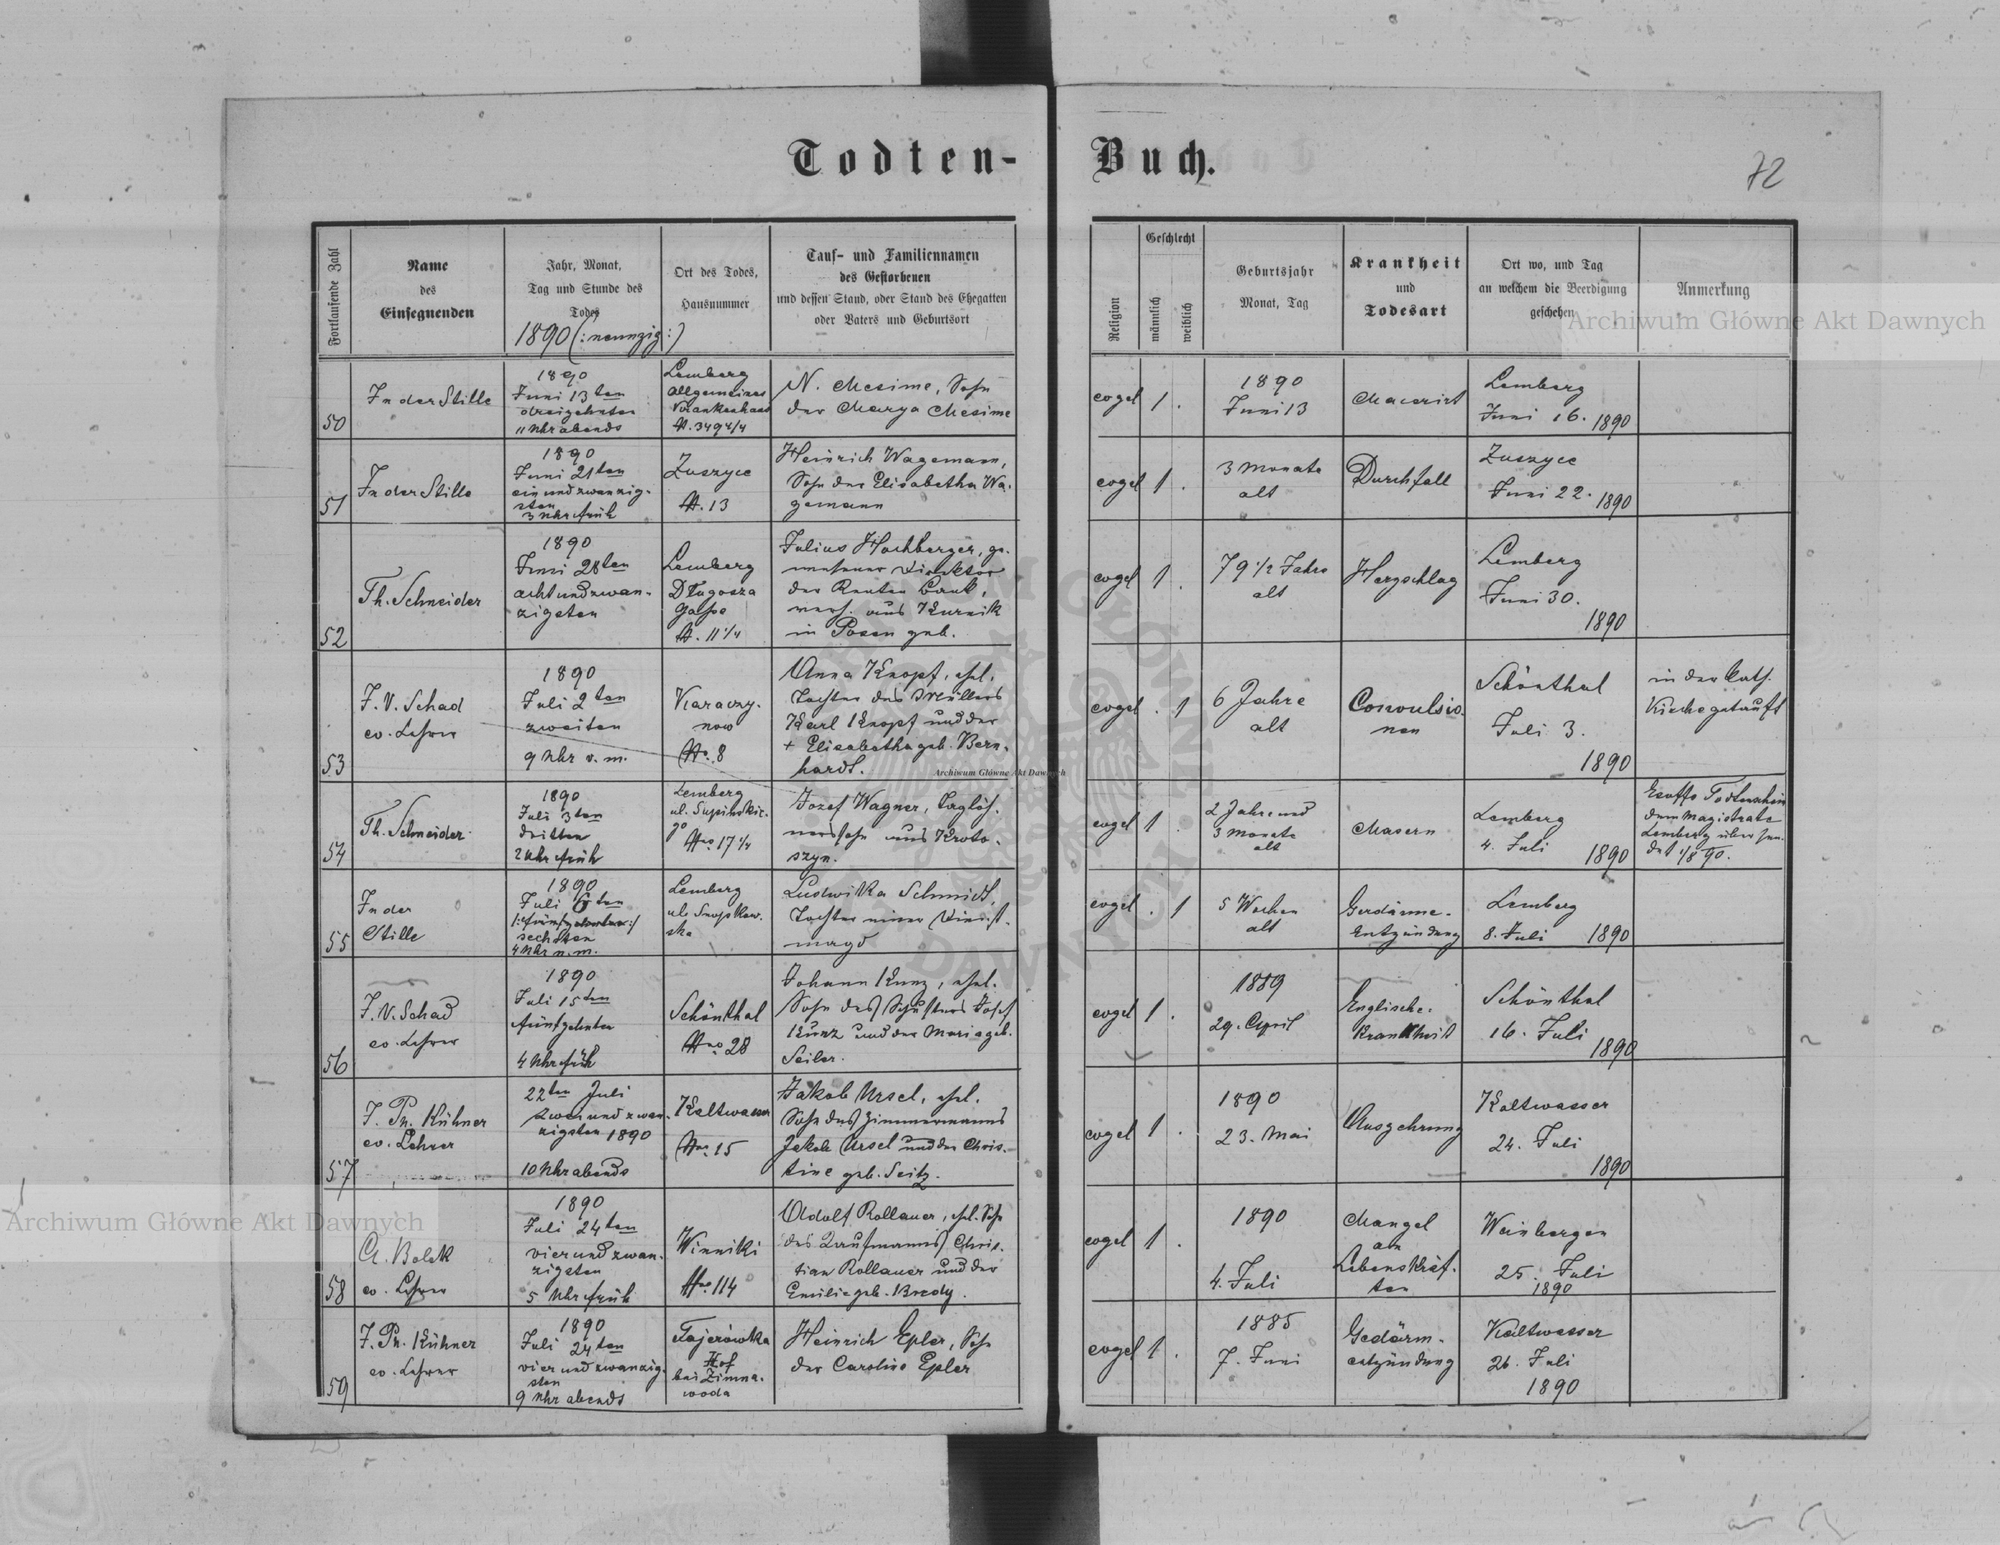 Todten-Buch.
72
Fortlaufende Zahl
Name
des
Einsegnenden
Jahr, Monat,
Tag und Stunde des
Todes
1890 (: neunzig :)
Ort des Todes,
Hausnummer
Tauf- und Familiennamen
des Gestorbenen
und dessen Stand, oder Stand des Ehegatten
oder Vaters und Geburtsort
Religion
Geschlecht
männlich
weiblich
Geburtsjahr
Monat, Tag
Krankheit
und
Todesart
Ort wo, und Tag
an welchem die Beerdigung
geschehen
Anmerkung
50
In der Stille
1890
Juni 13ten
dreizehnten
11 Uhr abends
Lemberg
Allgemeines
Krankenhaus
N. 349 4/4
N. Mesime, Sohn
der Marya Mesime
evgel
1 .
1890
Juni 13
Macerirt
Lemberg
Juni 16. 1890
51
In der Stille
1890
Juni 21ten
ein und zwanzig-
sten
3 Uhr früh
Zuszyce
N. 13
Heinrich Wagemann,
Sohn der Elisabetha Wa-
gemann
evgel
1 .
3 Monate
alt
Durchfall
Zuszyce
Juni 22. 1890
52
Th. Schneider
1890
Juni 28ten
acht und zwan-
zigsten
Lemberg
Długosza
Gasse
N. 11 1/4
Julius Hochberger, ge-
wesener Direktor
der Renten Bank,
verh. aus Kurnik
in Posen geb.
evgel
1 .
79 1/2 Jahre
alt
Herzschlag
Lemberg
Juni 30.
1890
53
J. V. Schad
ev. Lehrer
1890
Juli 2ten
zweiten
9 Uhr v. m.
Karaczy-
now
Nro. 8
Anna Knopf, ehel.
Tochter des Müllers
Karl Knopf und der
+ Elisabetha geb. Bern-
hardt.
evgel
. 1
6 Jahre
alt
Convulsio-
nen
Schönthal
Juli 3.
1890
in der kath.
Kirche getauft
54
Th. Schneider
1890
Juli 3ten
dritten
2 Uhr früh
Lemberg
ul. Supińskie-
go
Nro 17 1/4
Jozef Wagner, Taglöh-
nerssohn aus Kroto-
szyn.
evgel
1 .
2 Jahre und
3 Monate
alt
Masern
Lemberg
4. Juli 1890
Todtenschein
dem Magistrate
Lemberg übersen-
det 1/8 90.
55
In der
Stille
1890
Juli 6ten
sechsten
4 Uhr n. m.
Lemberg
ul. Snopkow-
ska
Ludwika Schmidt,
Tochter einer Dienst-
magd
evgel
. 1
5 Wochen
alt
Gerdärme-
Entzündung
Lemberg
8. Juli 1890
56
J. V. Schad
ev. Lehrer
1890
Juli 15ten
fünfzehnten
4 Uhr früh
Schönthal
Nro 28
Johann Kunz, ehel.
Sohn des Schusters Josef
Kunz und der Marie geb.
Seiler.
evgel
1 .
1889
29. April
Englische-
Krankheit
Schönthal
16. Juli
1890
57
J. Ph. Kühner
ev. Lehrer
22ten Juli
zwei und zwan-
zigsten 1890
10 Uhr abends
Kaltwasser
Nro. 15
Jakob Ursel, ehel.
Sohn des Zimmermanns
Jakob Ursel und der Chris-
tine geb. Seitz.
evgel
1 .
1890
23. Mai
Auszehrung
Kaltwasser
24. Juli
1890
58
A. Bolek
ev. Lehrer
1890
Juli 24ten
vier und zwan-
zigsten
5 Uhr früh
Winniki
Nro. 114
Adolf Rollauer, ehel. Sohn
des Kaufmanns Chris-
tian Rollauer und der
Emilie geb. Bredy.
evgel
1 .
1890
4. Juli
Mangel
an
Lebenskräf-
ten
Weinbergen
25. Juli
1890
59
J. Ph. Kühner
ev. Lehrer
1890
Juli 24ten
vier und zwanzig-
sten
9 Uhr abends
Fajerówka
Hof
bei Zimna-
woda
Heinrich Epler, Sohn
der Caroline Epler
evgel
1 .
1885
7. Juni
Gedärm-
entzündung
Kaltwasser
26. Juli
1890
Archiwum Główne Akt Dawnych
Archiwum Główne Akt Dawnych
Archiwum Główne Akt Dawnych